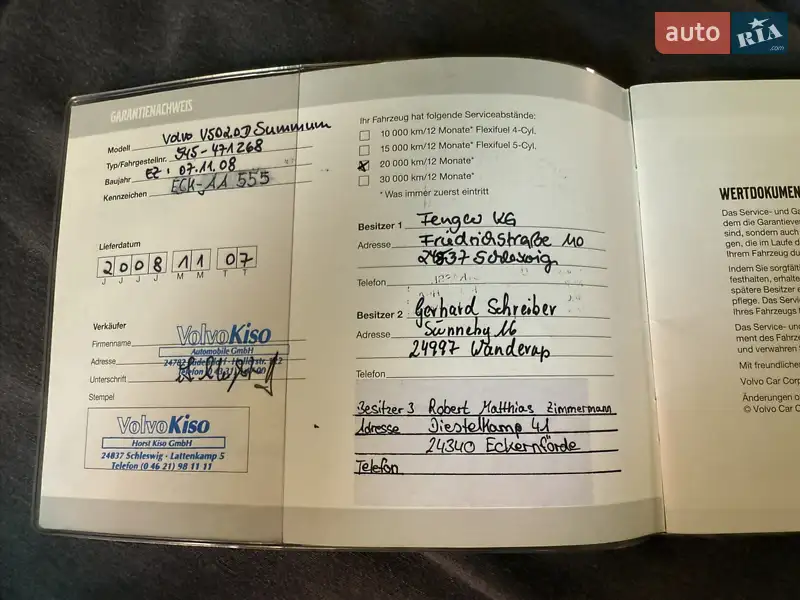 auto RIA .com
GARANTIENACHWEIS
Modell Volvo V50 2.0D Summum
Typ/Fahrgestellnr. 545-471268
Baujahr EZ: 07.11.08
Kennzeichen ECK-AA 555
Lieferdatum
2 0 0 8 1 1 0 7
J J J J M M T T
Verkäufer
Firmenname VolvoKiso
Automobile GmbH
Adresse
Unterschrift
Stempel
VolvoKiso
Horst Kiso GmbH
24837 Schleswig · Lattenkamp 5
Telefon (0 46 21) 98 11 11
Ihr Fahrzeug hat folgende Serviceabstände:
10 000 km/12 Monate* Flexifuel 4-Cyl.
15 000 km/12 Monate* Flexifuel 5-Cyl.
20 000 km/12 Monate*
30 000 km/12 Monate*
* Was immer zuerst eintritt
Besitzer 1 Fengco KG
Adresse Friedrichstraße 110
24837 Schleswig
Telefon
Besitzer 2 Gerhard Schreiber
Adresse Sünneby 16
24997 Wanderup
Telefon
Besitzer 3 Robert Matthias Zimmermann
Adresse Diestelkamp 41
24340 Eckernförde
Telefon
WERTDOKUMEN
Das Service- und Ga
dem die Garantiever
sind, sondern auch
gen, die im Laufe d
Ihrem Fahrzeug du
Indem Sie sorgfält
festhalten, erhalte
spätere Besitzer
pflege. Das Servi
Ihres Fahrzeugs
Das Service- un
ment des Fahrze
und verwahren
Mit freundlicher
Volvo Car Corp
Änderungen o
© Volvo Car C